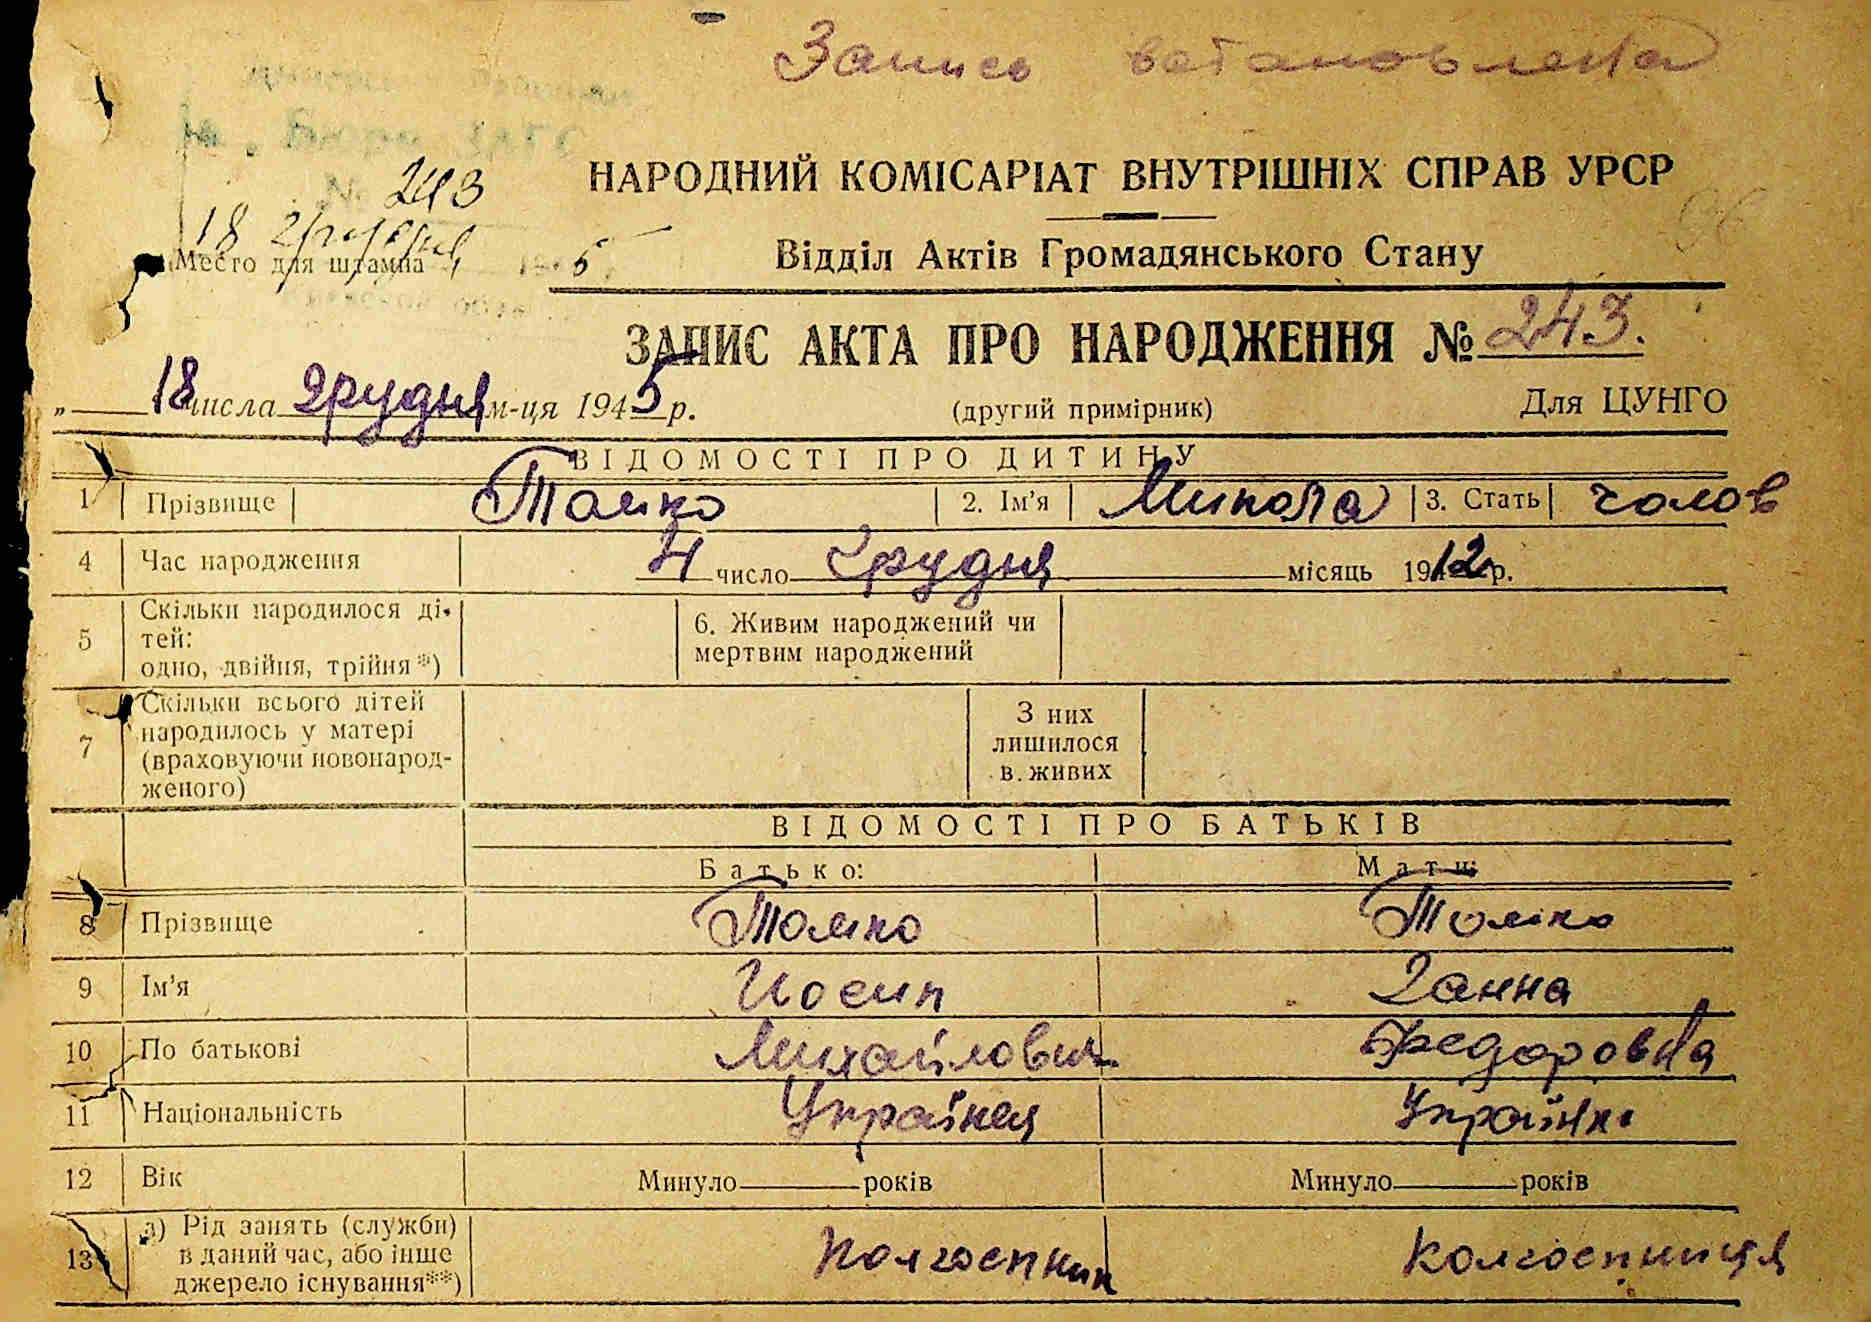 Запись встановлена
Бюро ЗАГС
№ 243
18 грудня 5
Место для штампа
НАРОДНИЙ КОМІСАРІАТ ВНУТРІШНІХ СПРАВ УРСР
96
Відділ Актів Громадянського Стану
ЗАПИС АКТА ПРО НАРОДЖЕННЯ № 243.
„ 18 числа грудня м-ця 1945 р.
(другий примірник)
Для ЦУНГО
ВІДОМОСТІ ПРО ДИТИНУ
1 Прізвище Томко 2. Ім'я Микола 3. Стать чолов
4 Час народження 4 число грудня місяць 1912 р.
5 Скільки народилося ді-
тей:
одно, двійня, трійня*)
6. Живим народжений чи
мертвим народжений
7 Скільки всього дітей
народилось у матері
(враховуючи новонарод-
женого)
З них
лишилося
в живих
ВІДОМОСТІ ПРО БАТЬКІВ
Батько: Мати:
8 Прізвище Томко Томко
9 Ім'я Иосип Ганна
10 По батькові Михайлович Федоровна
11 Національність Українец Українк
12 Вік Минуло років Минуло років
13 а) Рід занять (служби)
в даний час, або інше
джерело існування**)
Колгоспник Колгоспниця